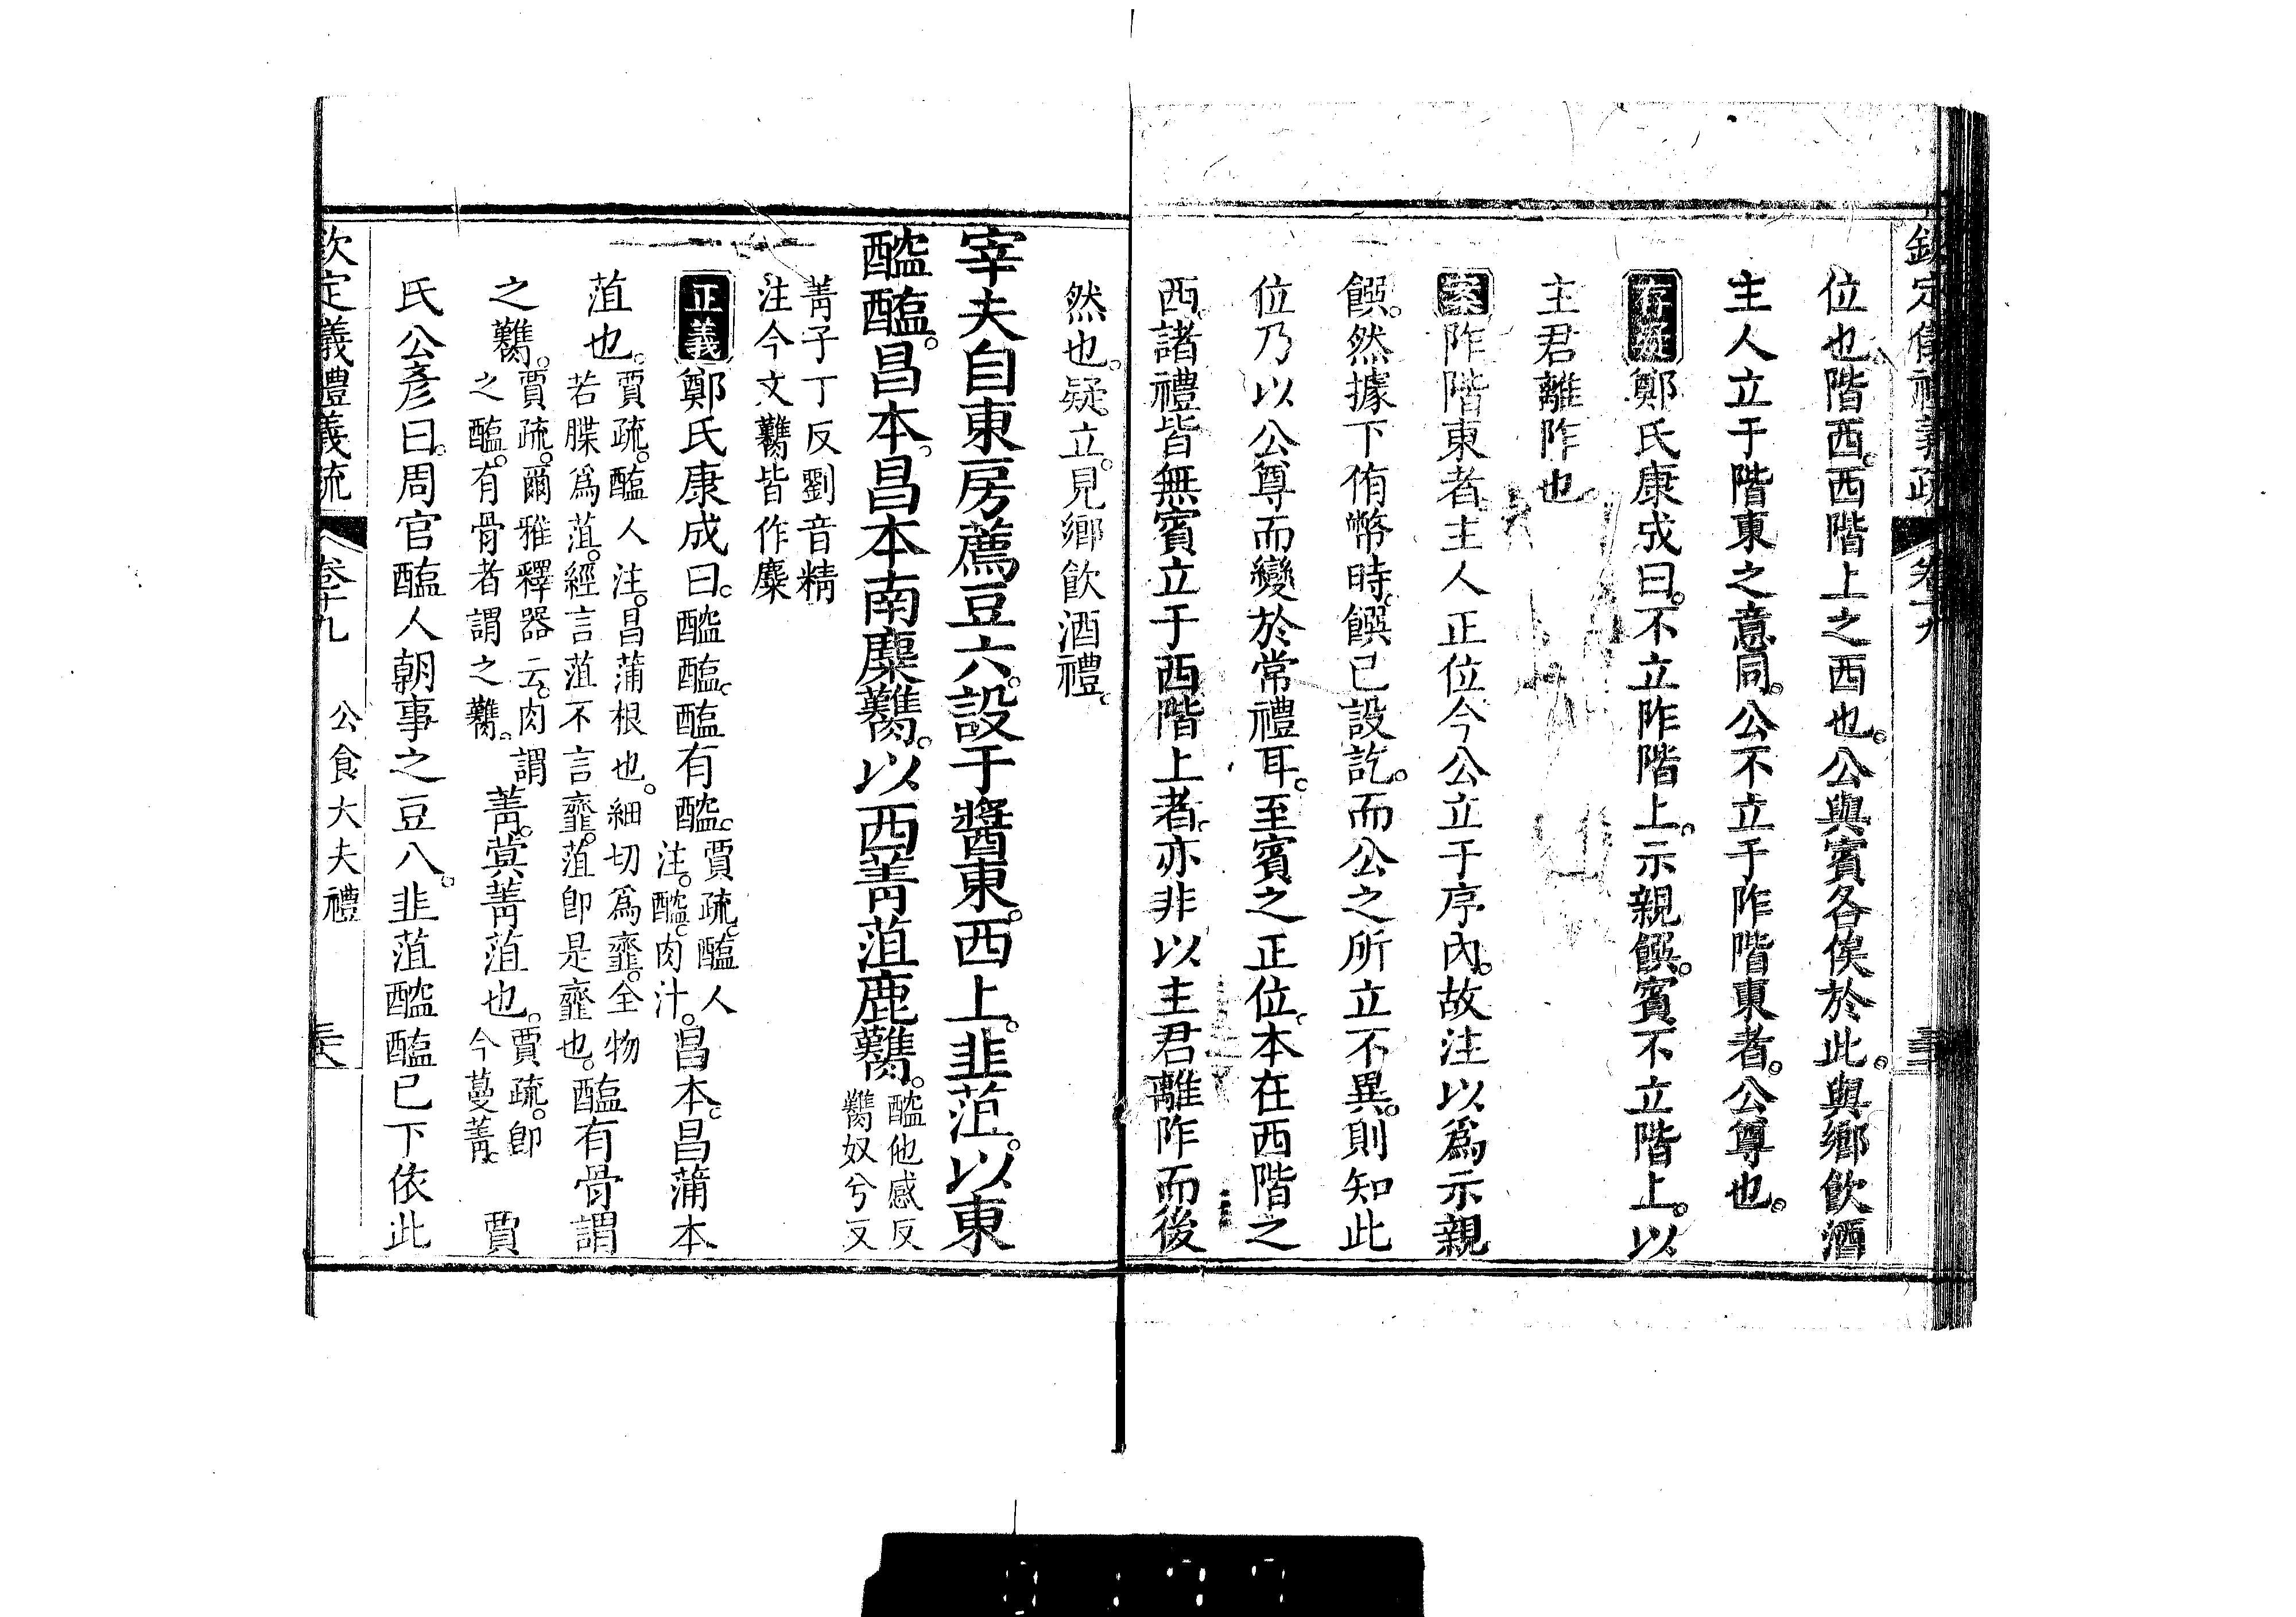 欽定儀禮義疏 卷十九
位也。階西。西階上之西也。公與賓各俟於此。與鄉飲酒
主人立于階東之意同。公不立于阼階東者。公尊也。
存疑鄭氏康成曰。不立阼階上。示親饌。賓不立階上。以
主君離阼也。
案阼階東者。主人正位今公立于序內。故注以爲示親
饌。然據下侑幣時。饌已設訖。而公之所立不異。則知此
位乃以公尊而變於常禮耳。至賓之正位。本在西階之
西。諸禮皆無賓立于西階上者。亦非以主君離阼而後
然也。疑立。見鄉飲酒禮。
宰夫自東房薦豆六。設于醬東。西上。韭菹。以東
醓醢。昌本。昌本南麋臡。以西菁菹鹿臡。醓他感反
臡奴兮反
菁子丁反劉音精
注今文臡皆作麋
正義鄭氏康成曰。醓醢。醢有醓。賈疏。醢人
注。醓。肉汁。昌本。昌蒲本
菹也。賈疏。醢人注。昌蒲根也。細切爲齏。全物
若䐑爲菹。經言菹不言齏。菹卽是齏也。醢有骨謂
之臡。賈疏。爾雅釋器云。肉謂
之醢。有骨者謂之臡。菁。蓂菁菹也。賈疏。卽
今蔓菁。賈
氏公彥曰。周官醢人朝事之豆八。韭菹醓醢已下依此
欽定義禮義疏 卷十九 公食大夫禮 三八